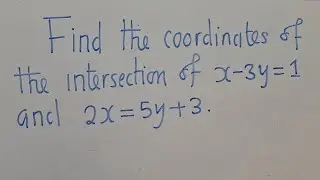 Find the coordinates of
the intersection of x-3y=1
and 2x=5y+3.